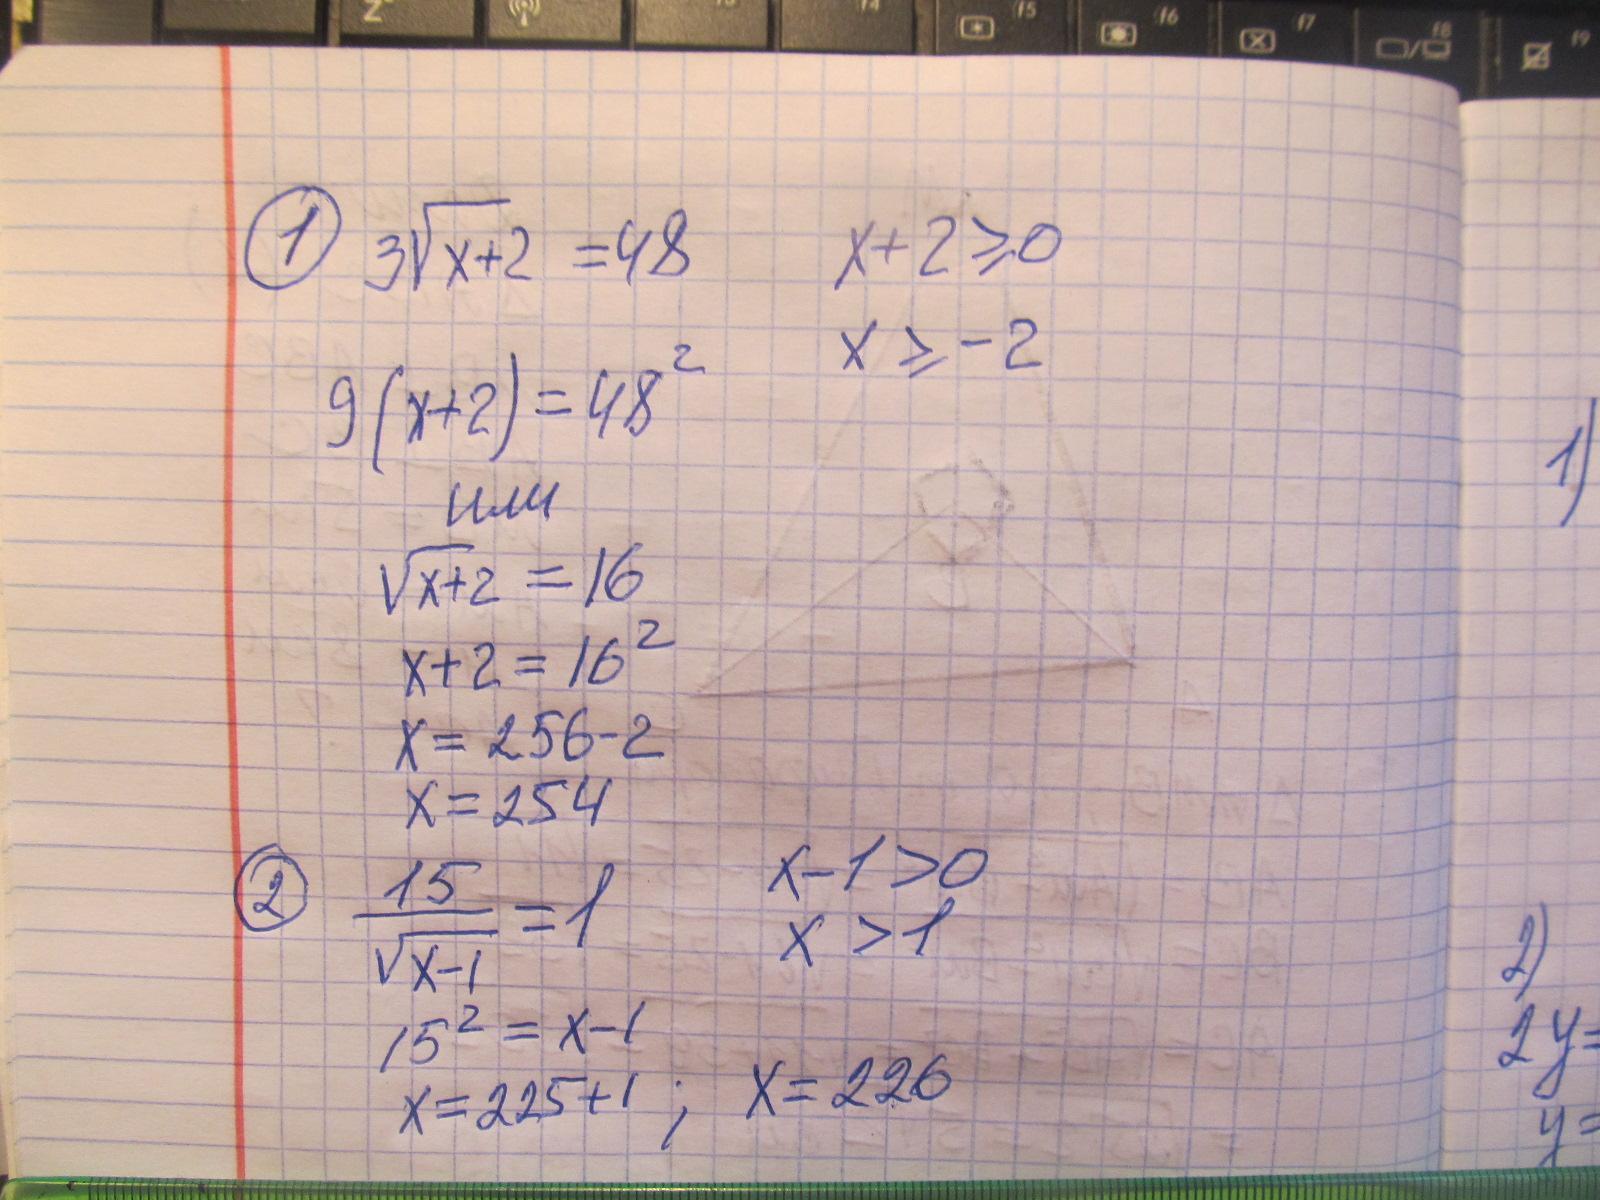 f5 f6 f7 f8 f9
① 3√x+2 = 48 x+2 ≥ 0
x ≥ -2
9(x+2) = 48²
или
√x+2 = 16
x+2 = 16²
x = 256-2
x = 254
② 15/√x-1 = 1 x-1 > 0
x > 1
15² = x-1
x = 225+1 ; x = 226
1)
2)
2y=
y=